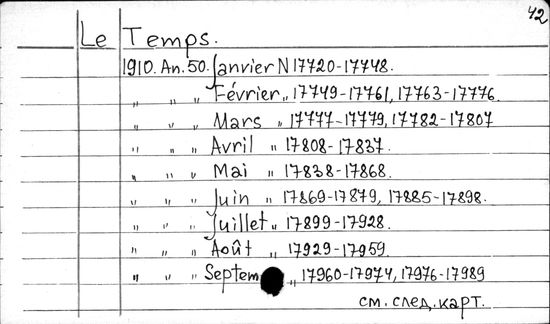 42
Le Temps.
1910. An. 50. Janvier N 17720-17748.
„ „ „ Février „ 17749-17761, 17763-17776.
„ „ „ Mars „ 17777-17779, 17782-17807
„ „ „ Avril „ 17808-17837.
„ „ „ Mai „ 17838-17868.
„ „ „ Juin „ 17869-17879, 17885-17898.
„ „ „ Juillet „ 17899-17928.
„ „ „ Août „ 17929-17959.
„ „ „ Septem „ 17960-17974, 17976-17989
см. след. карт.